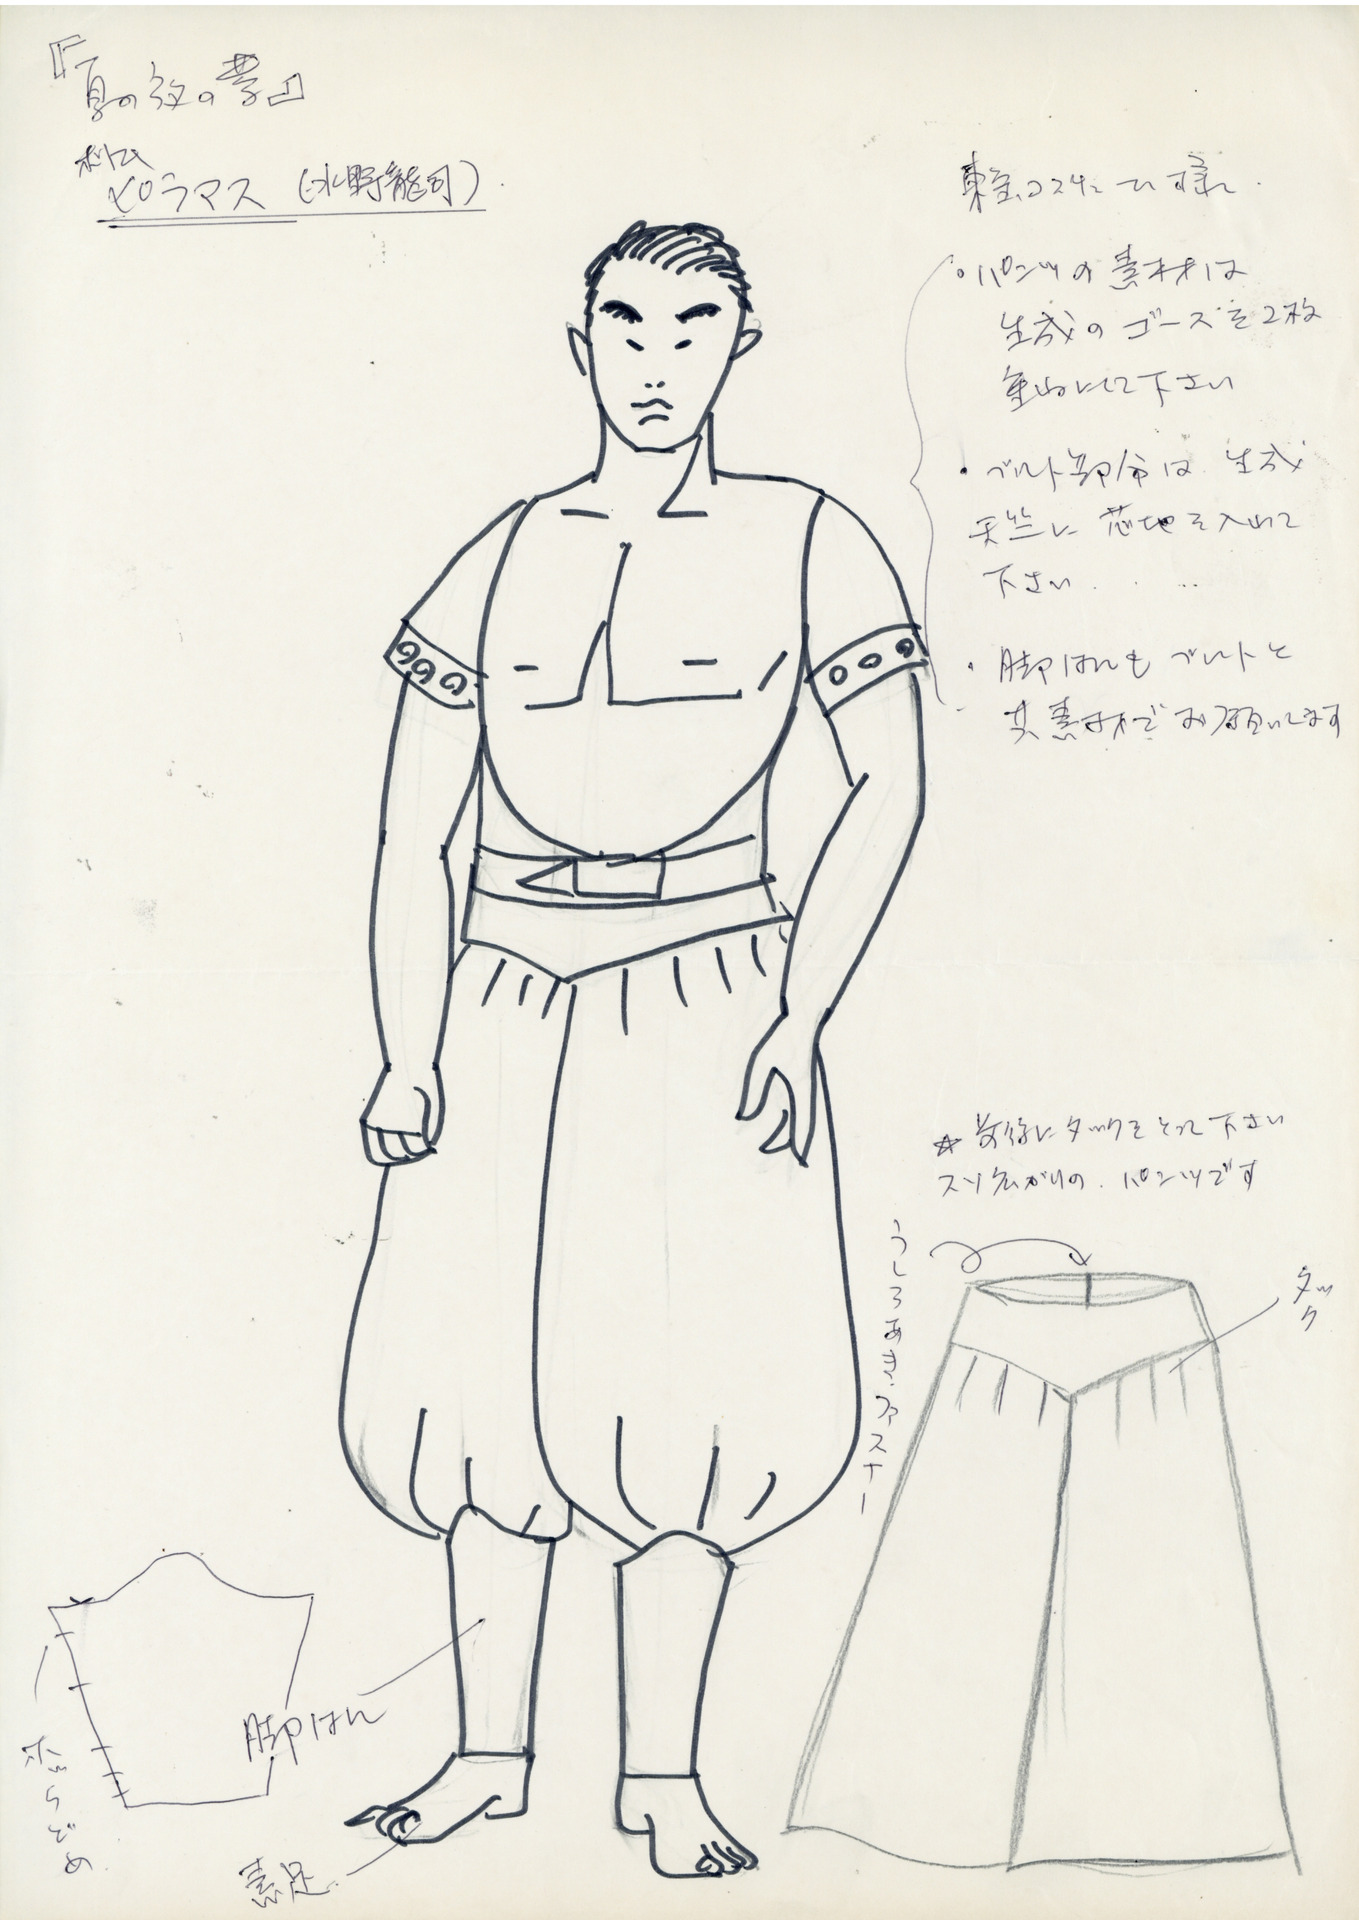 『夏の夜の夢』
ボトム
ピラマス (水野龍司)
東宝コスチューム様
・パンツの素材は
生成のゴースを2枚
重ねにして下さい
・ベルト部分は 生成
天竺に 芯地を入れて
下さい.
・脚はんも ベルトと
共素材で お願いします
☆前後にタックをとって下さい
スソ広がりの パンツです
うしろあき.ファスナー
タック
脚はん
ホックどめ
素足